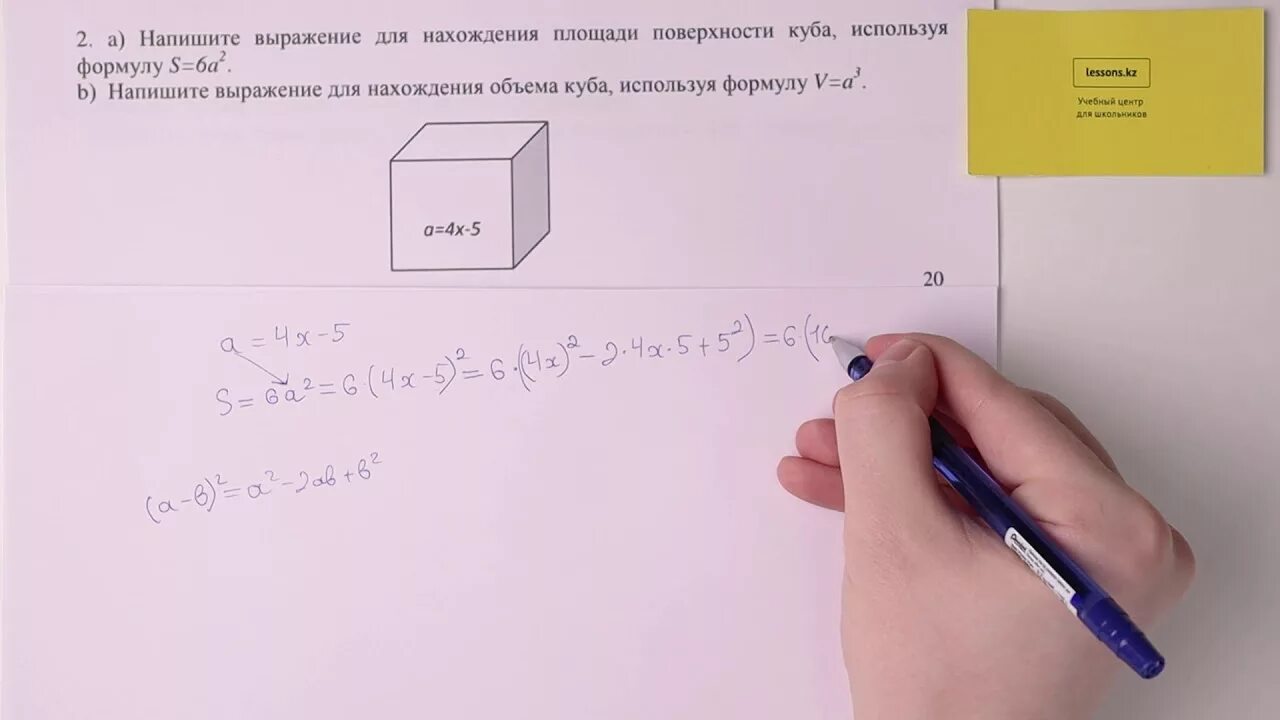 2. а) Напишите выражение для нахождения площади поверхности куба, используя
формулу S=6a².
b) Напишите выражение для нахождения объема куба, используя формулу V=a³.
a=4x-5
20
lessons.kz
Учебный центр
для школьников
a = 4x - 5
S = 6a² = 6·(4x-5)² = 6·((4x)² - 2·4x·5 + 5²) = 6·(16
(a-b)² = a² - 2ab + b²